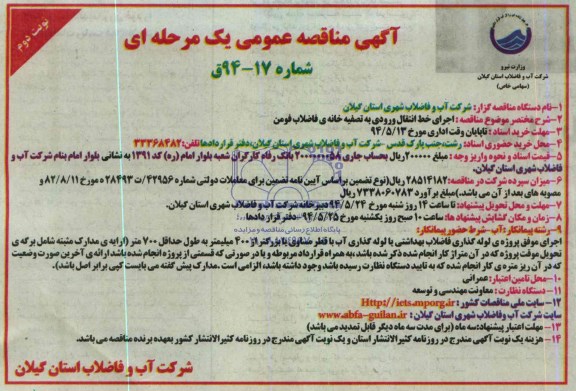 نوبت دوم
وزارت نیرو
شرکت آب و فاضلاب استان گیلان
(سهامی خاص)
آگهی مناقصه عمومی یک مرحله ای
شماره ۱۷-۹۴ق
۱-نام دستگاه مناقصه گزار: شرکت آب و فاضلاب شهری استان گیلان
۲-شرح مختصر موضوع مناقصه : اجرای خط انتقال ورودی به تصفیه خانه ی فاضلاب فومن
۳-مهلت خرید اسناد : تاپایان وقت اداری مورخ ۹۴/۵/۱۳
۴-محل خرید حضوری اسناد: رشت،جنب پارک قدس -شرکت آب و فاضلاب شهری استان گیلان،دفتر قراردادها تلفن:۳۳۳۶۸۴۸۲
۵-قیمت اسناد و نحوه واریز وجه : مبلغ ۲۰۰۰۰۰ ریال بحساب جاری ۲۰۰۰۷۰۰۰۵۸ بانک رفاه کارگران شعبه بلوار امام (ره) کد ۱۳۹۱ به نشانی بلوار امام بنام شرکت آب و
فاضلاب شهری استان گیلان.
۶-میزان سپرده شرکت در مناقصه: ۲۸۵۱۴۱۸۲ ریال(نوع تضمین براساس آیین نامه تضمین برای معاملات دولتی شماره ۴۲۹۵۶/ت ۲۸۴۹۳ ه مورخ ۸۲/۸/۱۱ و
مصوبه های بعد از آن می باشد.)مبلغ برآورد ۷۳۳۸۰۶۷۸۳ ریال
۷-مهلت و محل تحویل پیشنهاد: تا ساعت ۱۴ روز شنبه مورخ ۹۴/۵/۲۴ دبیرخانه شرکت آب و فاضلاب شهری استان گیلان.
۸-زمان و مکان گشایش پیشنهاد ها: ساعت ۱۰ صبح روز یکشنبه مورخ ۹۴/۵/۲۵- دفتر قرارداد ها.
پایگاه اطلاع رسانی مناقصه و مزایده
۹-رشته پیمانکار :آب- شرط حضور پیمانکار:
اجرای موفق پروژه ی لوله گذاری فاضلاب بهداشتی یا لوله گذاری آب با قطر مساوی یا بزرگتر از ۴۰۰ میلیمتر به طول حداقل ۷۰۰ متر (ارایه ی مدارک مثبته شامل برگه ی
تحویل موقت پروژه که در آن متراژ کار انجام شده ذکر شده باشد،به همراه قرارداد مربوطه و یا در صورتی که قسمتی از پروژه انجام شده باشد ارائه ی آخرین صورت وضعیت
که در آن ریز متره ی کار انجام شده که به تایید دستگاه نظارت رسیده باشد وجود داشته باشد؛ الزامی است .مدارک پیش گفته می بایست کپی برابر اصل باشد).
۱۰-محل تامین اعتبار: عمرانی
۱۱- دستگاه نظارت : معاونت مهندسی و توسعه
۱۲- سایت ملی مناقصات کشور : Http://iets.mporg.ir
سایت شرکت آب و فاضلاب شهری استان گیلان : www.abfa-guilan.ir
۱۳- مهلت اعتبار پیشنهاد:سه ماه (برای مدت سه ماه دیگر قابل تمدید می باشد)
۱۴- هزینه یک نوبت آگهی مندرج در روزنامه کثیرالانتشار استان و یک نوبت آگهی مندرج در روزنامه کثیرالانتشار کشور بعهده برنده مناقصه می باشد.
شرکت آب و فاضلاب استان گیلان